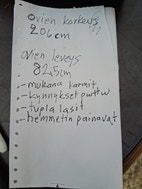 ovien korkeus
206cm
ovien leveys
82,5cm
- mukana karmit
- kynnykset puttuu
- tupla lasit
- hemmetin painavat